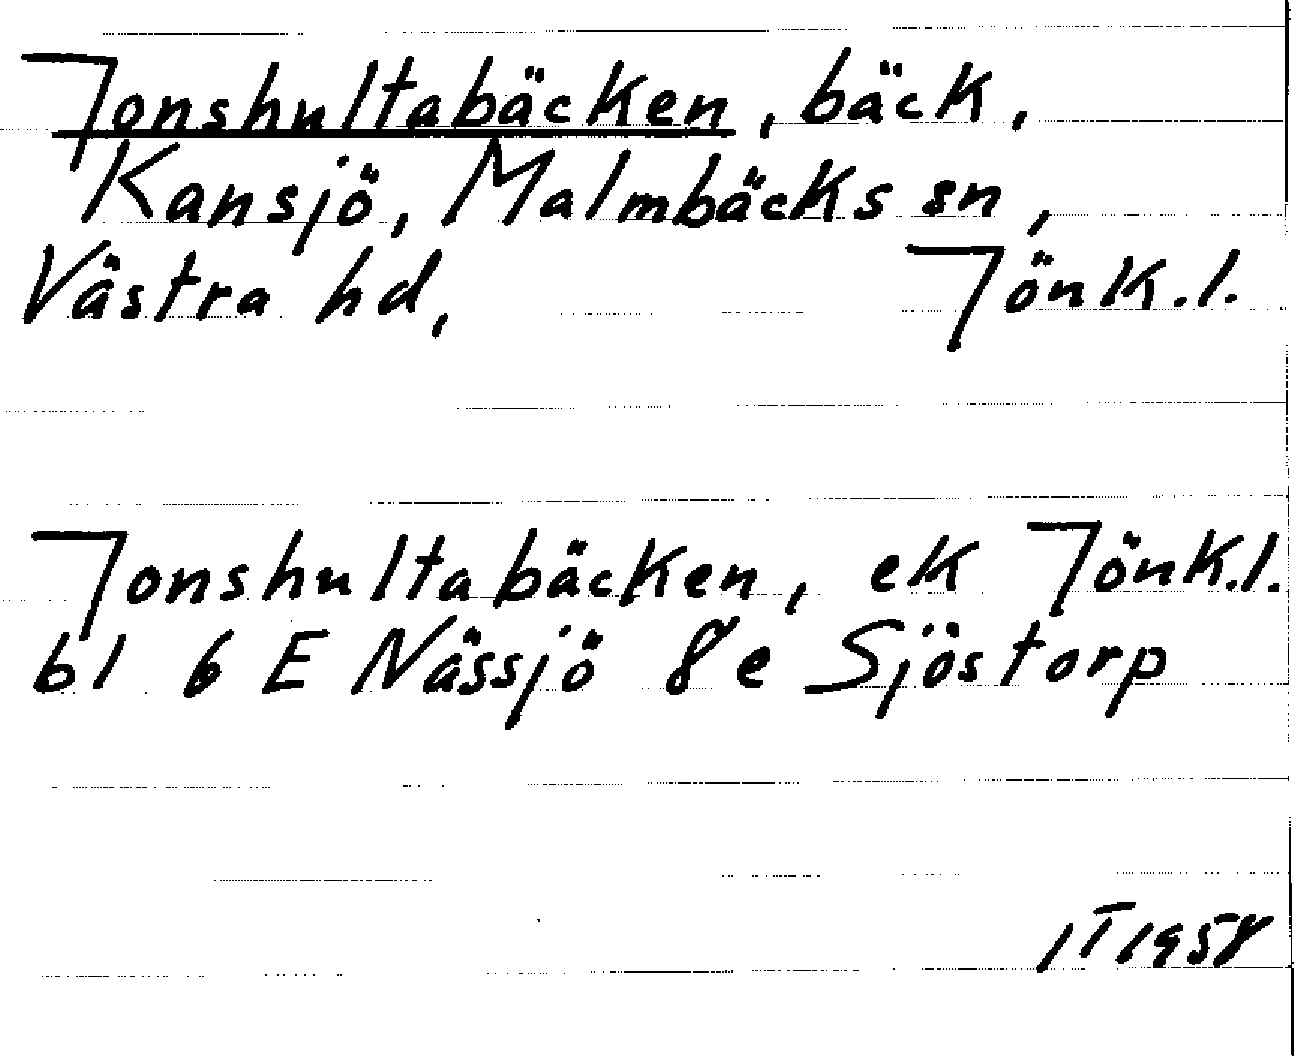 Jonshultabäcken, bäck,
Kansjö, Malmbäcks sn,
Västra hd, Jönk.l.
Jonshultabäcken, ek Jönk.l.
bl 6 E Nässjö 8e Sjöstorp
1958